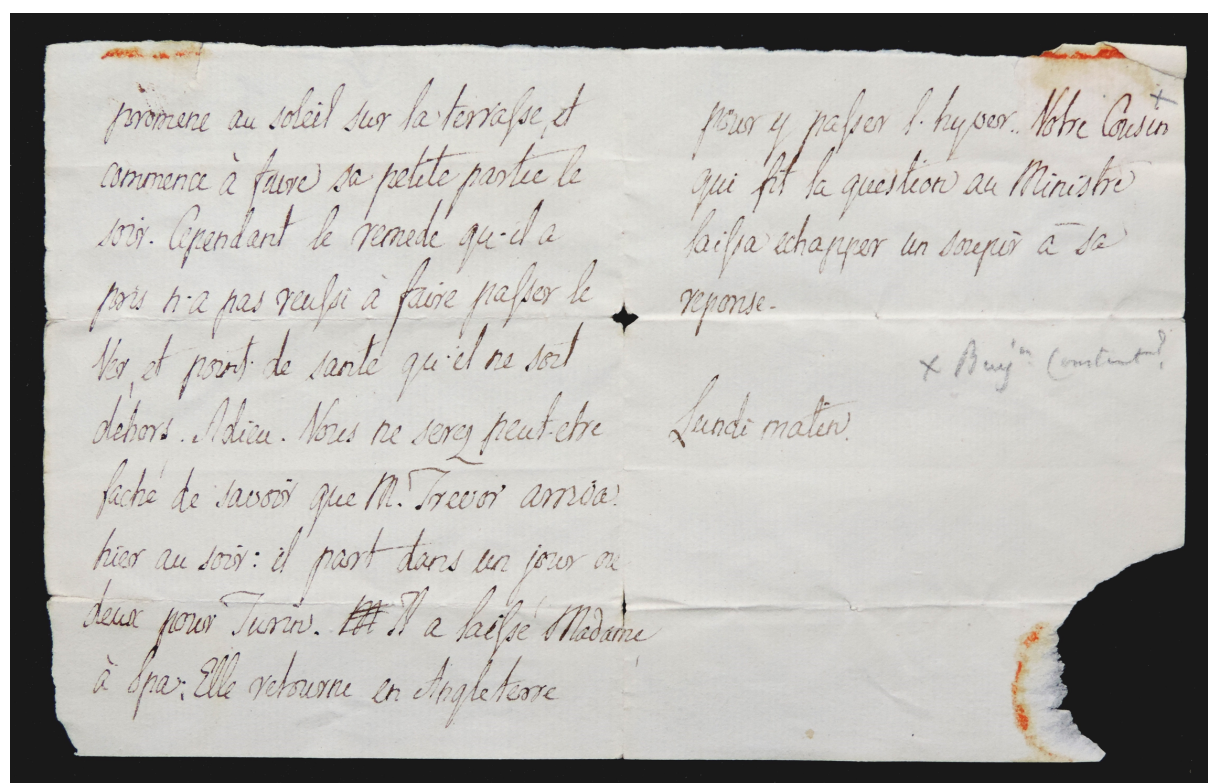 promene au soleil sur la terrasse, et
commence à faire sa petite partie le
soir. Cependant le remede qu'il a
pris n'a pas reussi à faire passer le
Ver, et point de santé qu'il ne soit
dehors. Adieu. Vous ne serez peut-etre
faché de savoir que M. Trevor arriva
hier au soir: il part dans un jour ou
deux pour Turin. Il a laissé Madame
à Spa: Elle retourne en Angleterre
pour y passer l'hyver. Notre Cousin +
qui fit la question au Ministre
laissa echapper un soupir à sa
reponse.
x Benjn Constant?
Lundi matin.